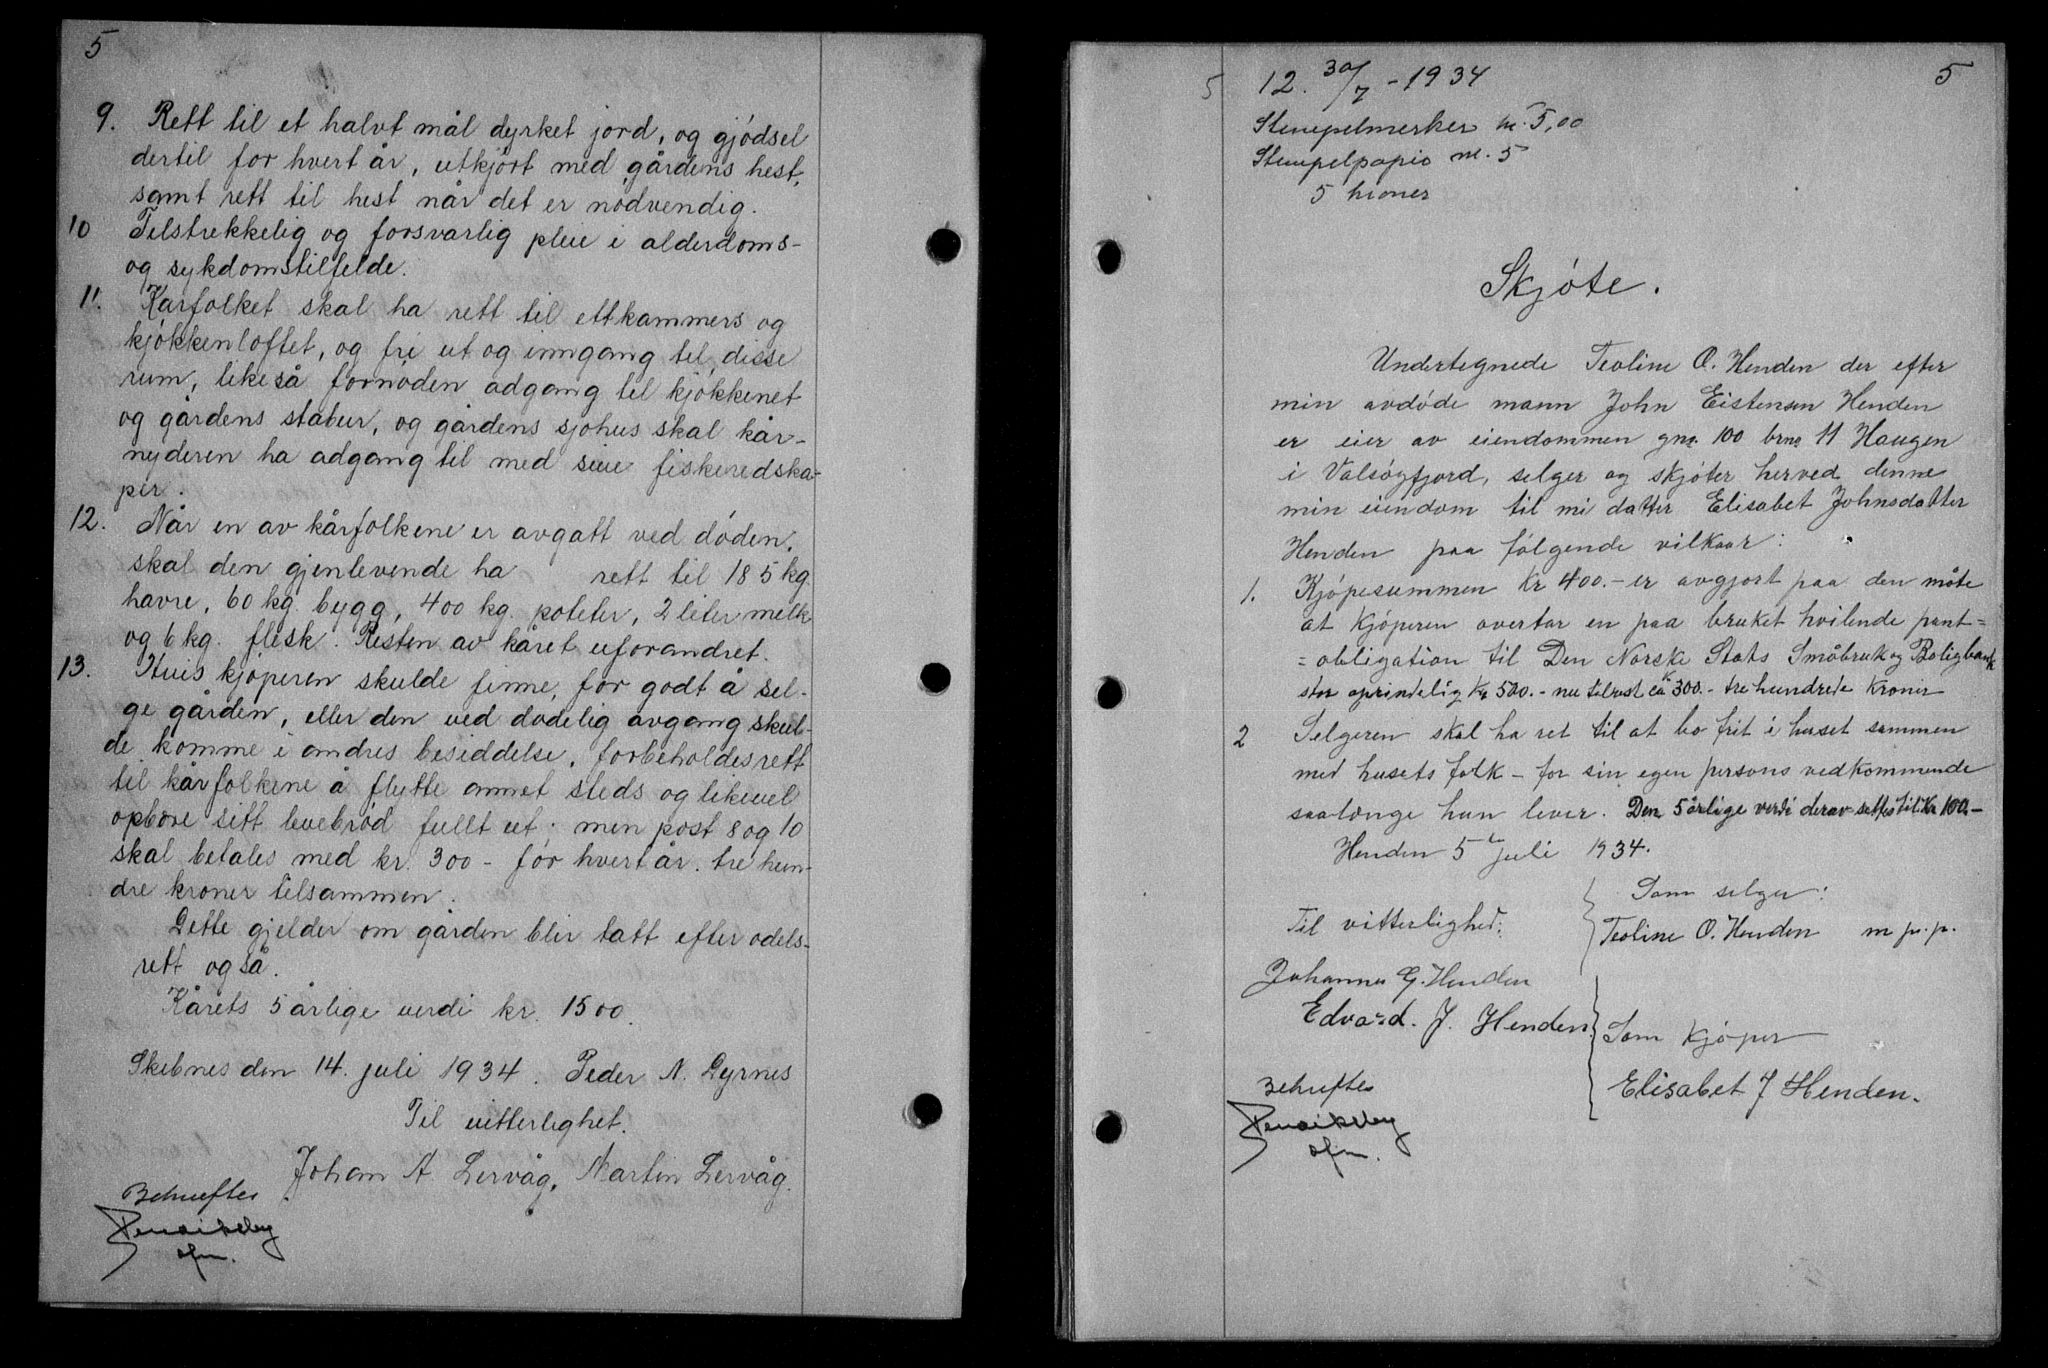 5
9. Rett til et halvt mål dyrket jord, og gjødsel
dertil for hvert år, utkjørt med gårdens hest,
samt rett til hest når det er nødvendig.
10 Tilstrekkelig og forsvarlig pleie i alderdoms-
og sykdomstilfelde.
11. Kårfolket skal ha rett til ett kammers og
kjøkkenloftet, og fri ut og inngang til disse
rum, likeså fornøden adgang til kjøkkenet
og gårdens stabur, og gårdens sjøhus skal kår-
nyderen ha adgang til med sine fiskeredska-
per.
12. Når en av kårfolkene er avgått ved døden,
skal den gjenlevende ha rett til 185 kg.
havre, 60 kg. bygg, 400 kg. poteter, 2 liter melk
og 6 kg. flesk. Resten av kåret uforandret.
13. Hvis kjøperen skulde finne, for godt å sel-
ge gården, eller den ved dødelig avgang skul-
de komme i andres besiddelse, forbeholdes rett
til kårfolkene å flytte annet steds og likevel
opbære sitt levebrød fullt ut; men post 8 og 10
skal betales med kr. 300 - for hvert år. tre hun-
dre kroner tilsammen.
Dette gjelder om gården blir tatt efter odels-
rett også.
Kårets 5 årlige verdi kr. 1500.
Skebnes den 14. juli 1934. Peder N. Dyrnes
Til vitterlighet.
Johan A Lervåg, Martin Lervåg.
Bekreftes
ofm.
5
5
12. 30/7 - 1934
Stempelmerker kr. 5,00
Stempelpapir kr. 5
5 kroner
Skjøte.
Undertegnede Teoline O. Henden der efter
min avdøde mann John Eistensen Henden
er eier av eiendommen gnr. 100 brnr 11 Haugen
i Valsøyfjord, selger og skjøter herved denne
min eiendom til mi datter Elisabet Johnsdatter
Henden paa følgende vilkaar:
1. Kjøpesummen Kr 400.- er avgjort paa den måte
at Kjøperen overtar en paa bruket hvilende pant=
=obligation til Den Norske Stats Småbruk og Boligbank
stor oprindelig Kr 500.- nu tilrest ca K 300.- tre hundrede Kroner
2 Selgeren skal ha ret til at bo frit i huset sammen
med husets folk - for sin egen persons vedkommende
saalænge hun lever. Den 5 årlige verdi derav settes til Kr 100.-
Henden 5te juli 1934.
Som selger:
Til vitterlighed:
Teoline O. Henden m p. p.
Johannes G. Henden
Edvard. J. Henden.
Som Kjøper
Elisabet J Henden.
Bekreftes
ofm.